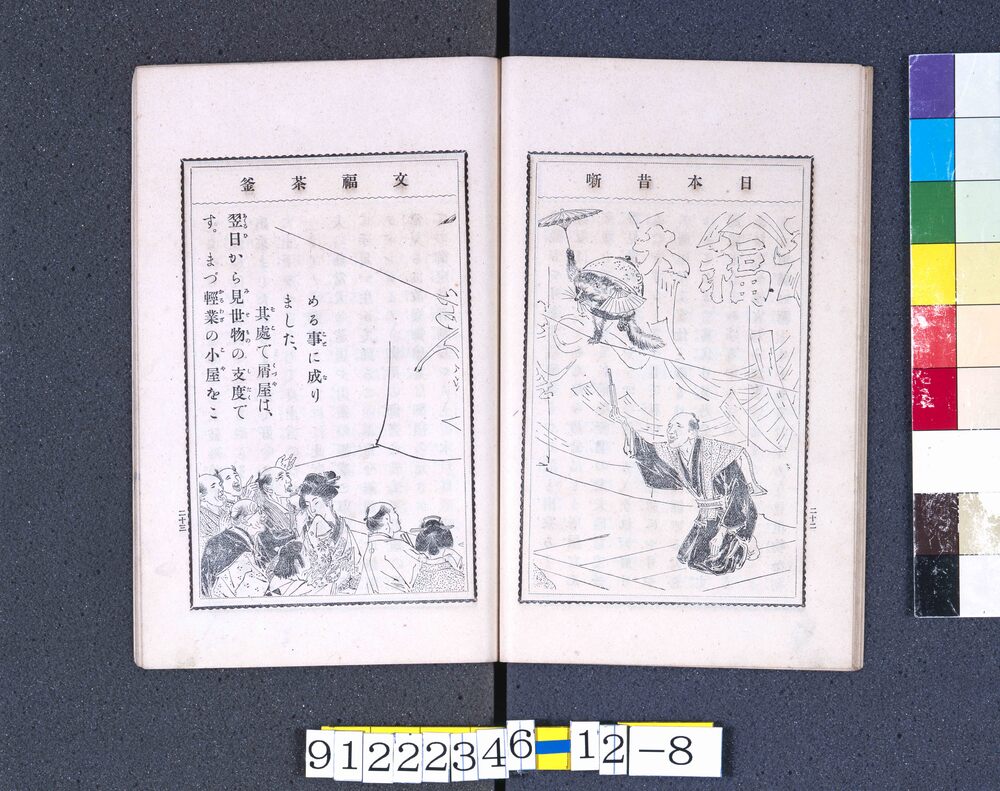 日本昔噺
福
二十二
文福茶釜
める事に成り
ました、
其處で屑屋は、
翌日から見世物の支度て
す。まづ輕業の小屋をこ
二十三
91222346 12-8